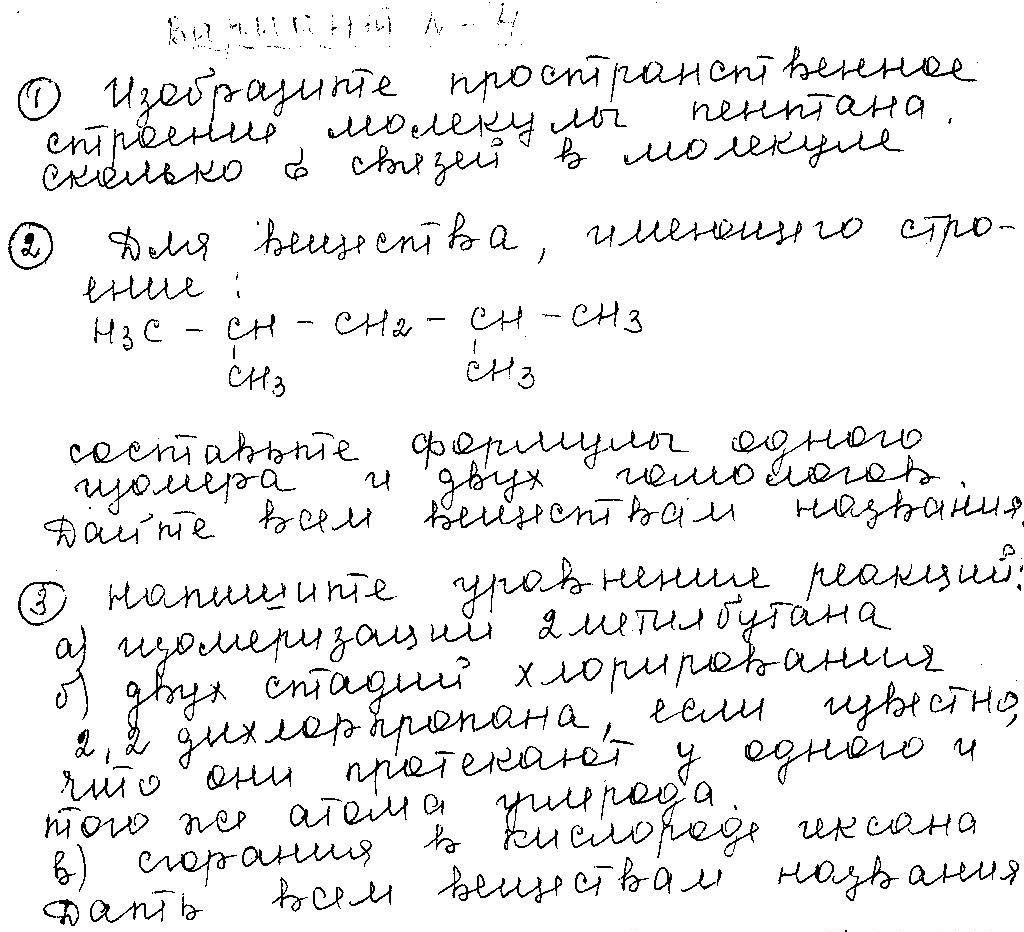 Вариант N-4
① Изобразите пространственное
строение молекулы пентана.
сколько б связей в молекуле
② Для вещества, имеющего стро-
ение:
H3C - CH - CH2 - CH - CH3
CH3 CH3
составьте формулы одного
изомера и двух гомологов.
Дайте всем веществам названия.
③ Напишите уравнение реакций:
а) изомеризации 2метилбутана
б) двух стадий хлорирования
2,2 дихлорпропана, если известно,
что они протекают у одного и
того же атома углерода.
в) сгорания в кислороде гексана
Дать всем веществам названия